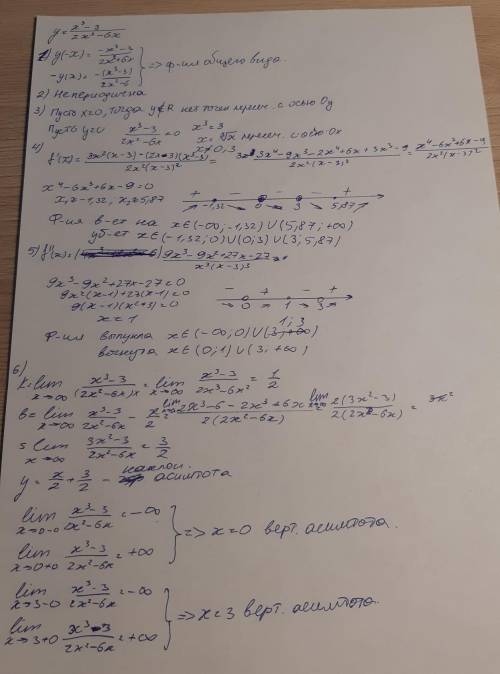 y = x³-3 / 2x²-6x
1) y(-x) = -x³-3 / 2x²+6x
-y(x) = -(x³-3) / 2x²-6 } => ф-ия общего вида.
2) Непериодична
3) Пусть x=0, тогда y∉R нет точек пересеч. с осью Oy
Пусть y=0 x³-3 / 2x²-6x = 0 x³=3
x = ∛x пересеч. с осью Ox
x≠0, 3
4) f'(x) = 3x²(x-3)-(2x-3)(x³-3) / 2x²(x-3)² = 3x⁴-9x³-2x⁴+6x+3x³-9 / 2x²(x-3)² = x⁴-6x³+6x-9 / 2x²(x-3)²
x⁴-6x³+6x-9=0
x₁≈-1,32, x₂≈5,87
+ - - - +
-1,32 0 3 5,87
Ф-ия в-ет на x∈(-∞; -1,32)∪(5,87; +∞)
уб-ет x∈(-1,32; 0)∪(0; 3)∪(3; 5,87)
5) f''(x) = 9x³-9x²+27x-27 / x³(x-3)³
9x³-9x²+27x-27=0
9x²(x-1)+27(x-1)=0
9(x-1)(x²+3)=0
x=1
- + - +
0 1 3
Ф-ия выпукла x∈(-∞; 0)∪(1; 3)
вогнута x∈(0; 1)∪(3; +∞)
6)
k = lim x→∞ x³-3 / (2x²-6x)x = lim x→∞ x³-3 / 2x³-6x² = 1/2
b = lim x→∞ x³-3 / 2x²-6x - x/2 = lim 2x³-6-2x³+6x / 2(2x²-6x) = lim x→∞ 2(3x²-3) / 2(2x²-6x) =
= lim x→∞ 3x²-3 / 2x²-6x = 3/2
y = x/2 + 3/2 - наклон. асимптота
lim x→0-0 x³-3 / 2x²-6x = -∞
lim x→0+0 x³-3 / 2x²-6x = +∞ } => x=0 верт. асимтота.
lim x→3-0 x³-3 / 2x²-6x = -∞
lim x→3+0 x³-3 / 2x²-6x = +∞ } => x=3 верт. асимтота.